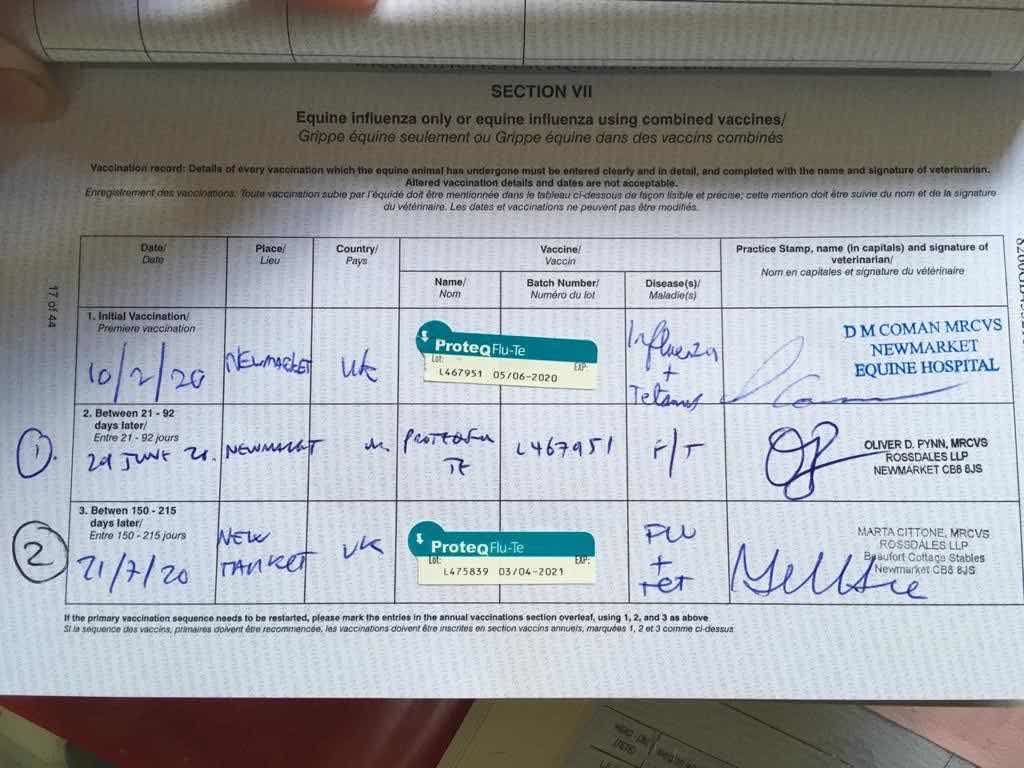 SECTION VII
Equine influenza only or equine influenza using combined vaccines/
Grippe équine seulement ou Grippe équine dans des vaccins combinés
Vaccination record: Details of every vaccination which the equine animal has undergone must be entered clearly and in detail, and completed with the name and signature of veterinarian.
Altered vaccination details and dates are not acceptable.
Enregistrement des vaccinations: Toute vaccination subie par l'équidé doit être mentionnée dans le tableau ci-dessous de façon lisible et precise; cette mention doit être suivie du nom et de la signature
du vétérinaire. Les dates et vaccinations ne peuvent pas être modifiés.
17 of 44
Date/
Date
Place/
Lieu
Country/
Pays
Vaccine/
Vaccin
Name/
Nom
Batch Number/
Numéro du lot
Disease(s)/
Maladie(s)
Practice Stamp, name (in capitals) and signature of
veterinarian/
Nom en capitales et signature du vétérinaire
1. Initial Vaccination/
Premiere vaccination
10/2/20
NEWMARKET
UK
ProteqFlu-Te
Lot:
EXP:
L467951 05/06-2020
Influenza
+
Tetanus
D M COMAN MRCVS
NEWMARKET
EQUINE HOSPITAL
1.
2. Between 21 - 92
days later/
Entre 21 - 92 jours
29 JUNE 20.
NEWMARKET
PROTEQFLU
TE
L467951
F/T
OLIVER D. PYNN, MRCVS
ROSSDALES LLP
NEWMARKET CB8 8JS
2
3. Betwen 150 - 215
days later/
Entre 150 - 215 jours
21/7/20
NEW
MARKET
UK
ProteqFlu-Te
Lot:
EXP:
L475839 03/04-2021
FLU
+
TET
MARTA CITTONE, MRCVS
ROSSDALES LLP
Beaufort Cottage Stables
Newmarket CB8 8JS
If the primary vaccination sequence needs to be restarted, please mark the entries in the annual vaccinations section overleaf, using 1, 2, and 3 as above
Si la séquence des vaccins, primaires doivent être recommencée, les vaccinations doivent être inscrites en section vaccins annuels, marquées 1, 2 et 3 comme ci-dessus